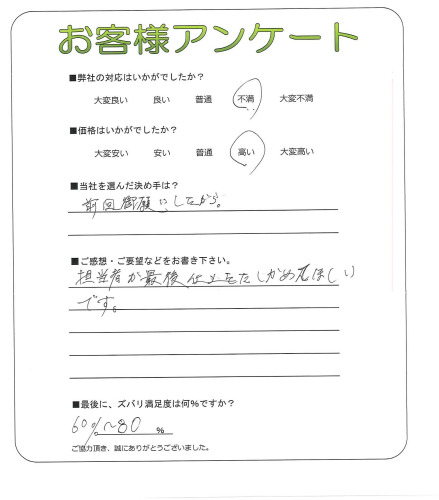 お客様アンケート
■弊社の対応はいかがでしたか？
大変良い 良い 普通 不満 大変不満
■価格はいかがでしたか？
大変安い 安い 普通 高い 大変高い
■当社を選んだ決め手は？
前回御願いしたから。
■ご感想・ご要望などをお書き下さい。
担当者が最後仕上をたしかめてほしい
です。
■最後に、ズバリ満足度は何%ですか？
60%〜80 %
ご協力頂き、誠にありがとうございました。